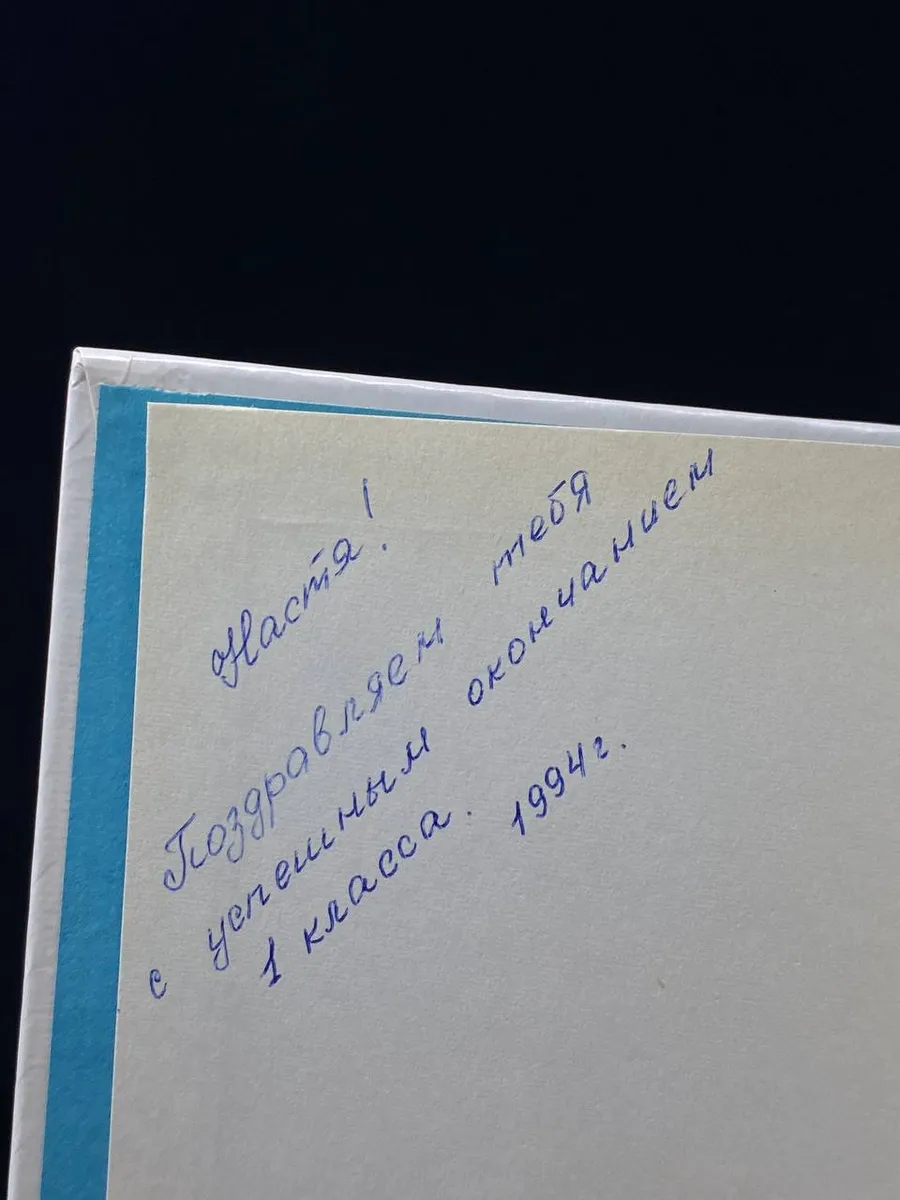 Настя!
Поздравляем тебя
с успешным окончанием
1 класса. 1994 г.